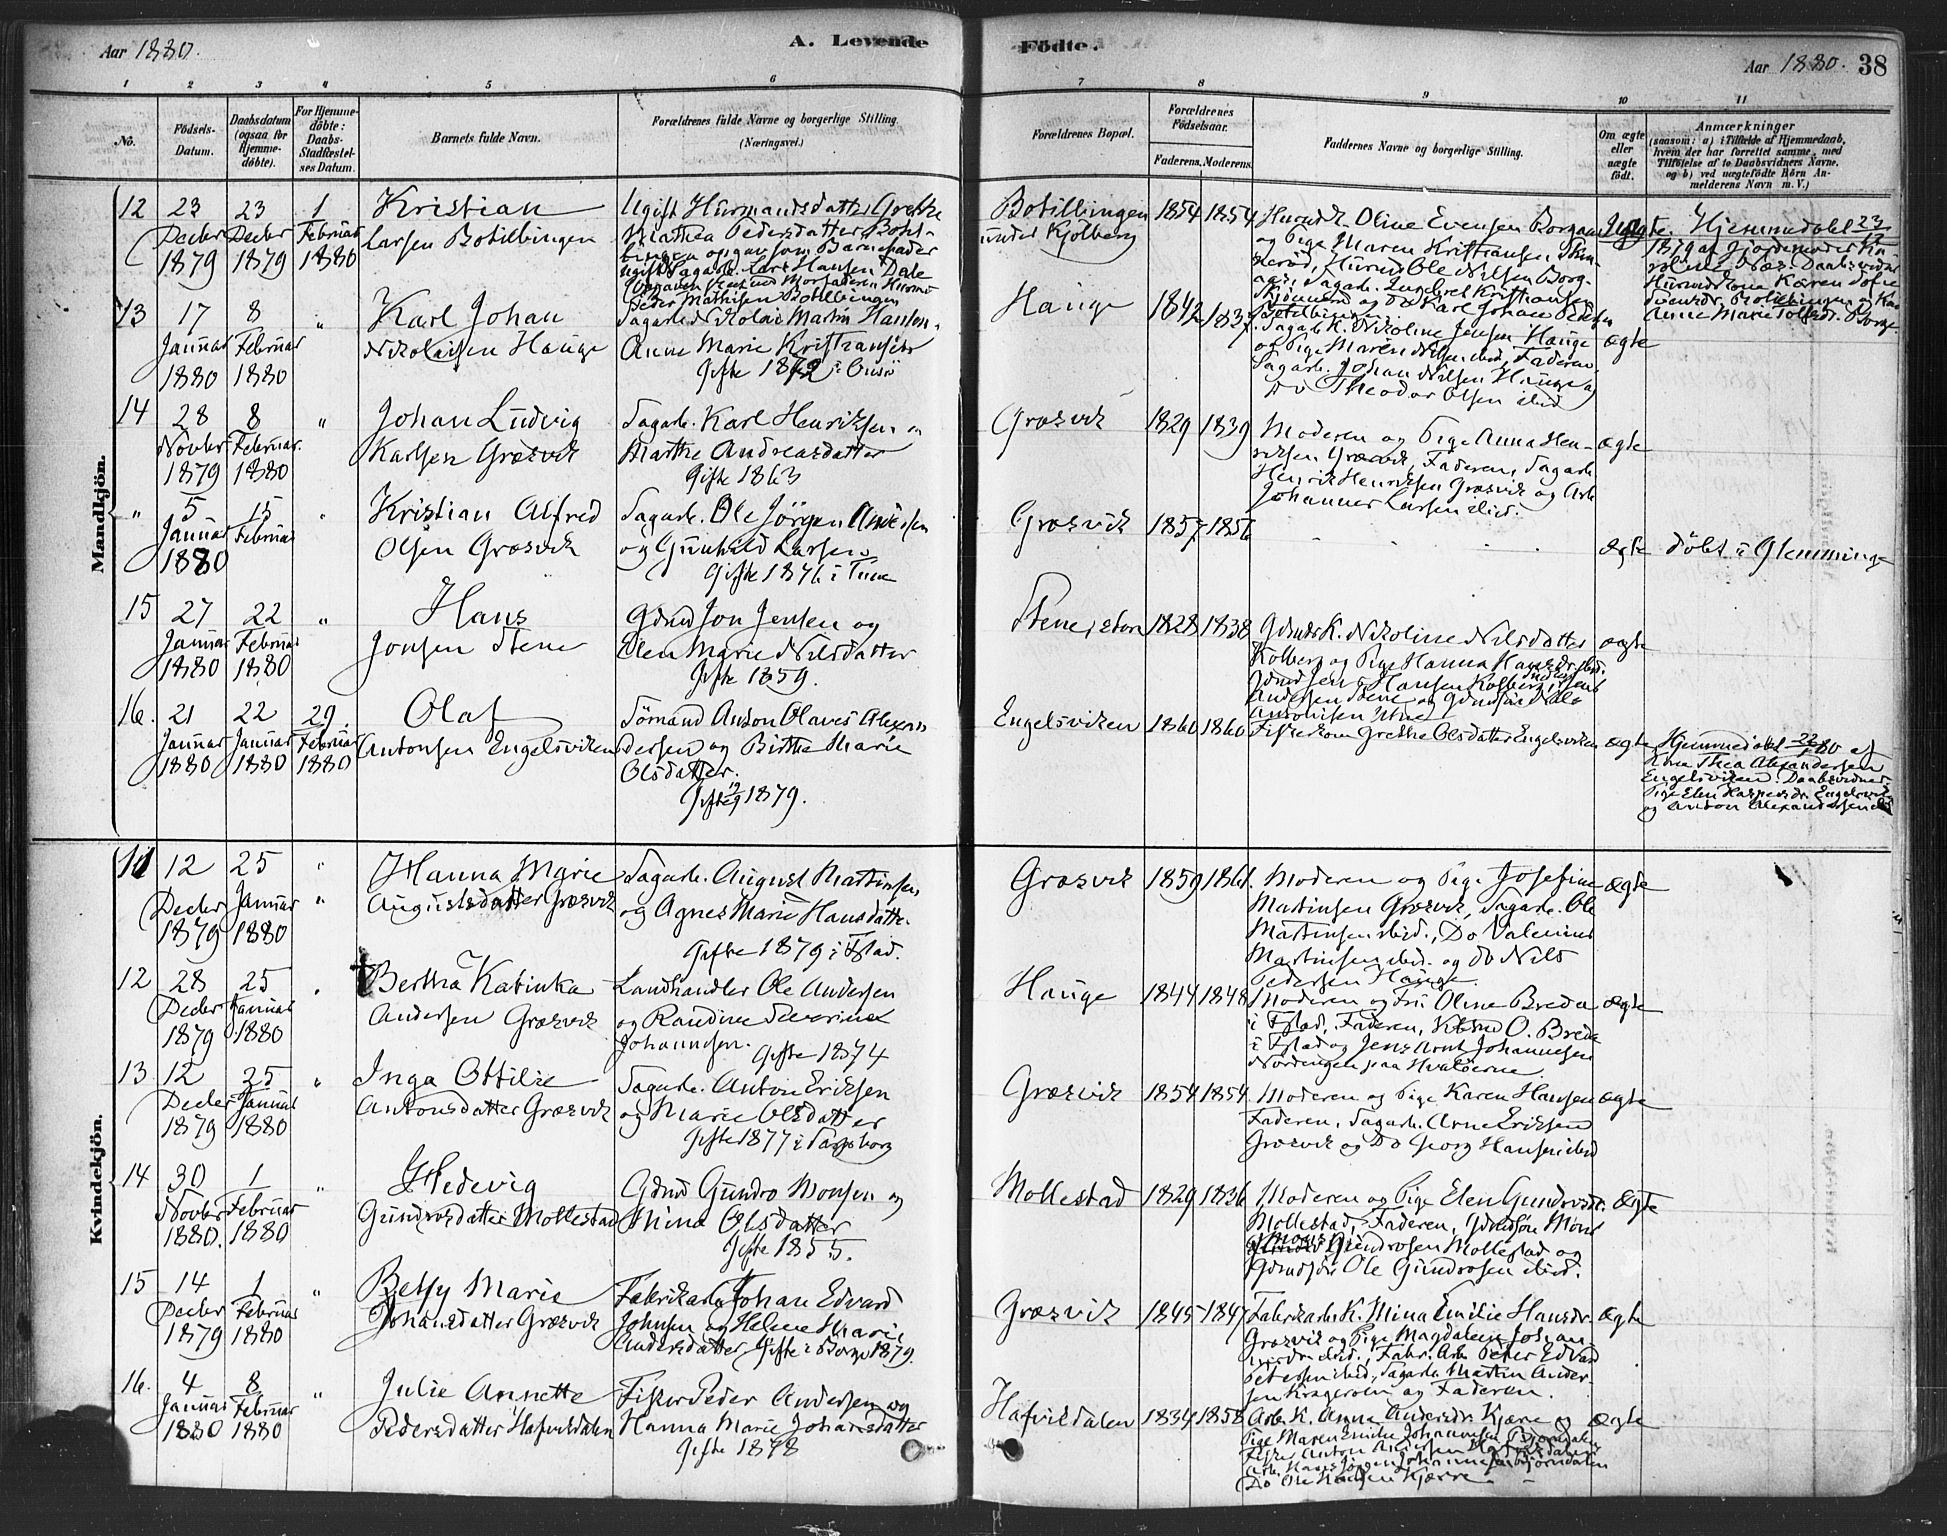 Aar 1880.
A. Levende
Födte.
Aar 1880. 38
1 2 3 4 5 6 7 8 9 10 11
No.
Födsels-Datum.
Daabsdatum (ogsaa for Hjemme-döbte).
For Hjemme-döbte: Daabs-Stadfæstel-ses Datum.
Barnets fulde Navn.
Forældrenes fulde Navne og borgerlige Stilling.
(Næringsvei.)
Forældrenes Bopæl.
Forældrenes Födselsaar.
Faderens. Moderens.
Faddernes Navne og borgerlige Stilling.
Om ægte eller uægte födt.
Anmærkninger
(saasom: a) i Tilfælde af Hjemmedaab,
hvem der har forrettet samme, med
Tilföielse af to Daabsvidners Navne,
og b) ved uægtefödte Börn An-
melderens Navn m. V.)
Mandkjön.
12 23 Decber 1879 23 Decber 1879 1 Februar 1880
Kristian
Larsen Botilbingen
Ugift Husmandsdatter Grethe
Mathea Pedersdatter
opgav som Barnefader
ugift Sagarb. Lars Hansen Dale
Botillingen
under Kjölberg
1854 1854
Husmdk. Oline Evensen
og Pige Maren Kristiansen
Husmd Ole Nilsen
Hjemmedöbt 23/12
1879 af Gjordemoder
Næs. Daabsvidner
Husmdkone Karen Sofie
13 17 Januar 1880 8 Februar 1880 "
Karl Johan
Nikolaisen Hauge
Sagarb. Nikolai Martin Hansen
Anne Marie Kristiansen
Gifte 1872 i Onsö
Hauge 1842 1837
Sagarb. K. Nikoline Jensen Hauge
og Pige Maren Nilsen ibid, Faderen,
Sagarb. Johan Nilsen Hauge og
Do Theodor Olsen ibid
ægte
14 28 Novber 1879 8 Februar 1880 "
Johan Ludvig
Karlsen Græsvik
Sagarb. Karl Henriksen og
Marthe Andreasdatter
Gifte 1863
Græsvik 1829 1839
Moderen og Pige Anna Hen-
riksen Græsvik, Faderen, Sagarb.
Henrik Henriksen Græsvik og Arb.
Johannes Larsen ibid.
ægte
" 5 Januar 1880 15 Februar "
Kristian Alfred
Olsen Græsvik
Sagarb. Ole Jörgen Andersen
og Gunhild Larsen
Gifte 1876 i Tune
Græsvik 1857 1856
ægte
döbt i Glemminge
15 27 Januar 1880 22 Februar 1880 "
Hans
Jonsen Stene
Gdmd Jon Jensen og
Elen Marie Nilsdatter
Gifte 1859.
Stene, store 1828 1838
Gdmds K. Nikoline Nilsdatter
Kolberg og Pige Hanna ibid.
Hansen Kolberg, Jens
Andersen Stene og
ægte
16. 21 Januar 1880 22 Januar 1880 29. Februar 1880
Olaf
Antonsen Engelsviken
Sömand Anton Olaves Alexan-
dersen og Birthe Marie
Olsdatter.
Gifte 1879.
Engelsviken 1860 1860
Fiskerkom Grethe Olsdatter Engelsviken
ægte
Hjemmedöbt 22/1 80 af
Kone Thea Alexandersen
Engelsviken. Daabsvidner
Pige Elen
og Anton Alexandersen ibid
Kvindekjön.
11 12 Decber 1879 25 Januar 1880 "
Hanna Marie
Augustsdatter Græsvik
Sagarb. August Martinsen
og Agnes Marie Hansdatter
Gifte 1879 i Fstad.
Græsvik 1859 1861.
Moderen og Pige Josefine
Martinsen Græsvik, Sagarb. Ole
Martinsen ibid., Do Valerius
Martinsen ibid. og do Nils
Pedersen Hauge.
ægte
12 28 Decber 1879 25 Januar 1880
Bertha Katinka
Andersen Græsvik
Landhandler Ole Andersen
og Randine Severine
Johannesen. Gifte 1874
Hauge 1844 1848
Moderen og Fru Oline Breda
i Fstad, Faderen, O. Breda
i Fstad og Jens Arnt Johannesen
Nordengen paa Hvalöerne.
ægte
13 12 Decber 1879 25 Januar 1880 "
Inga Ottilie
Antonsdatter Græsvik
Sagarb. Anton Eriksen
og Marie Olsdatter
Gifte 1877 i Sarpsborg
Græsvik 1854 1854
Moderen og Pige Karen Hansen
Faderen, Sagarb. Arne Eriksen
Græsvik og Do Georg Hansen ibid
ægte
14 30 Novber 1880. 1 Februar 1880 "
Hedevig
Gundrosdatter Mollestad
Gdmd Gundro Monsen og
Mina Olsdatter
Gifte 1855.
Mollestad 1829 1836
Moderen og Pige Elen Gundrosdr.
Mollestad, Faderen, Gdmdsön Mons
Gundrosen Mollestad og
Gdmdsön Ole Gundrosen ibid.
ægte
15 14 Decber 1879 1 Februar 1880 "
Betsy Marie
Johansdatter Græsvik
Fabrikarb. Johan Edvard
Johnsen og Helene Marie
Andersdatter, Gifte i Borge 1879.
Græsvik 1845 1847
Fabrikarb. K. Mina Emilie Hansdr.
Græsvik og Pige Magdalene Johan-
ibid., Fabr. Arb. Peter Edvard
Petersen ibid, Sagarb. Martin Ander-
sen Krageröen og Faderen.
ægte
16. 4 Januar 1880 8 Februar 1880 "
Julie Annette
Pedersdatter Hafvisdalen
Fisker Peder Andersen og
Hanna Marie Johansdatter
Gifte 1878
Hafvisdalen 1834 1858
Arb. K. Anna Andersdr. Kjære og
Pige Maren Emilie Johannesen Björndalen
Fisker Anton Andersen Hafvisdalen
Arb. Hans Jörgen Johannesen Björndalen
Do Ole Hansen Kjærre
ægte